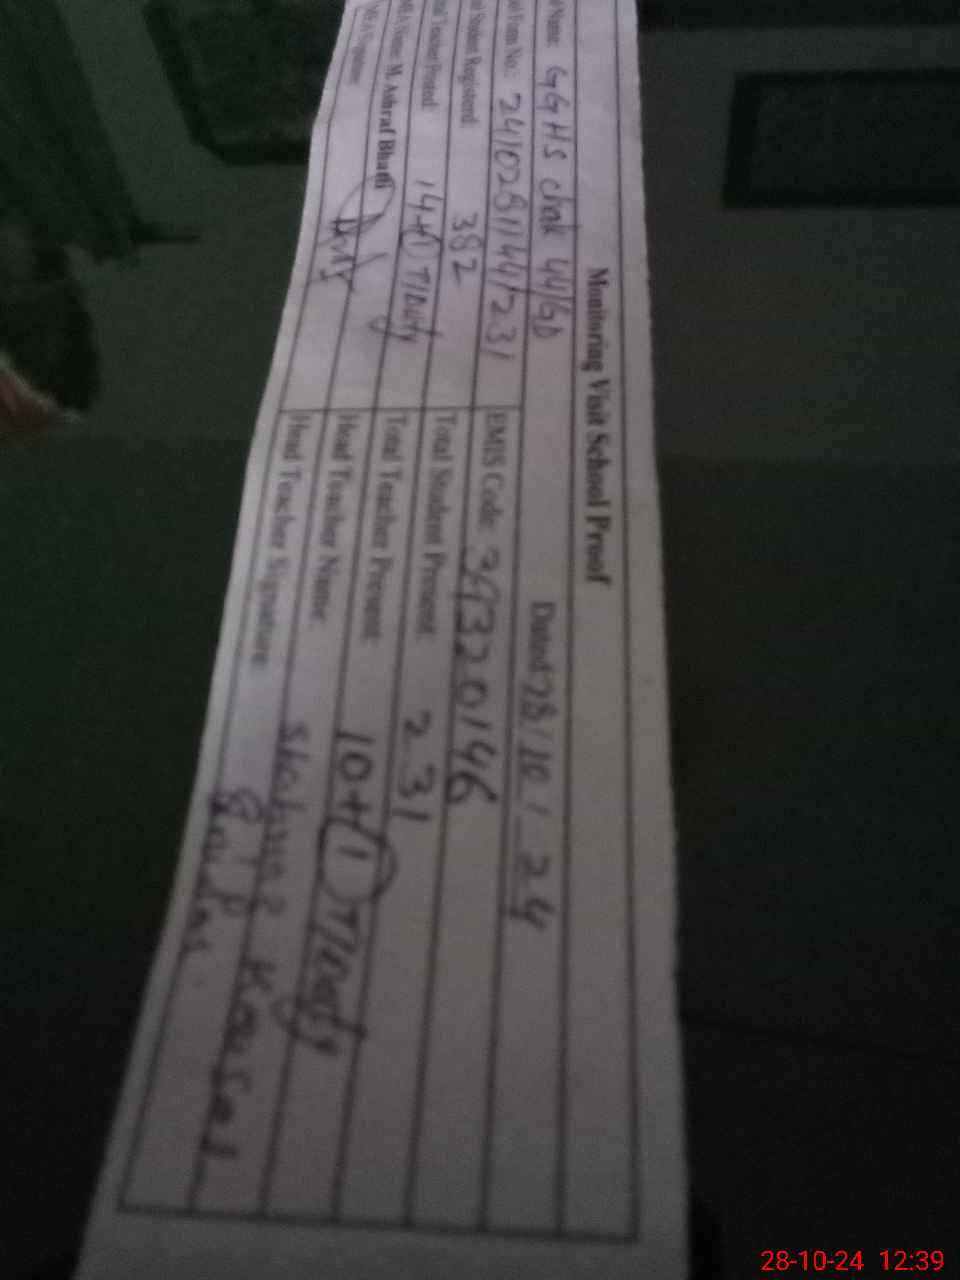 Monitoring Visit School Proof
Name: GGHS chak 44/GD Dated: 28/10/24
Form No.: 24102811441231 EMIS Code:
Student Registered: 382 Total Student Present: 231
Teacher Posted: 14+1 T/Duty Total Teacher Present: 10+1 T/Duty
Name: M. Ashraf Bhatti Head Teacher Name: Kousar
Signature: Head Teacher Signature:
28-10-24 12:39